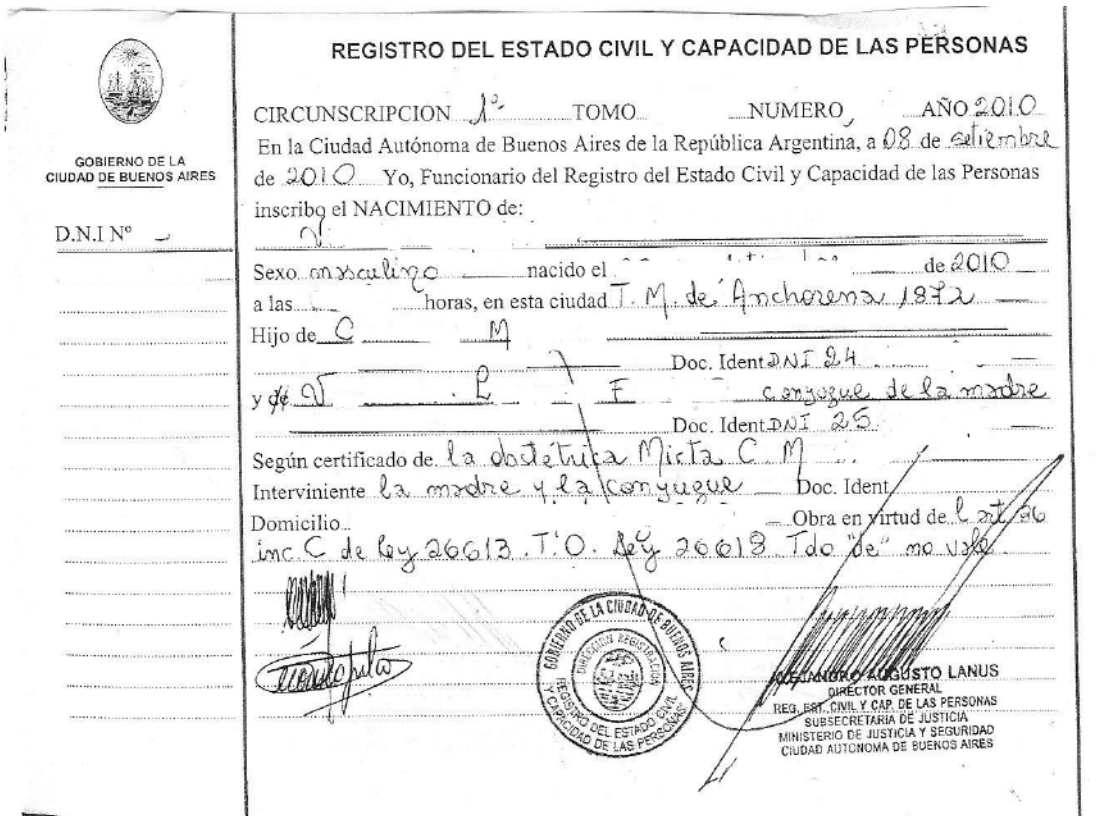 GOBIERNO DE LA
CIUDAD DE BUENOS AIRES
D.N.I Nº
REGISTRO DEL ESTADO CIVIL Y CAPACIDAD DE LAS PERSONAS
CIRCUNSCRIPCION 1º TOMO NUMERO AÑO 2010
En la Ciudad Autónoma de Buenos Aires de la República Argentina, a 08 de setiembre
de 2010 Yo, Funcionario del Registro del Estado Civil y Capacidad de las Personas
inscribo el NACIMIENTO de:
V
Sexo masculino nacido el de 2010
a las horas, en esta ciudad T. M. de Anchorena 1872
Hijo de C M
Doc. Ident DNI 24
y de V L F conyugue de la madre
Doc. Ident DNI 25
Según certificado de la obstétrica Mirta C. M
Interviniente la madre y la conyugue Doc. Ident
Domicilio Obra en virtud del art 36
inc. C de ley 26613. T.O. Ley 26618 Tdo "de" no vale
GOBIERNO DE LA CIUDAD DE BUENOS AIRES
DIRECCION REGISTRACION
REGISTRO DEL ESTADO CIVIL
Y CAPACIDAD DE LAS PERSONAS
ALEJANDRO AUGUSTO LANUS
DIRECTOR GENERAL
REG. EST. CIVIL Y CAP. DE LAS PERSONAS
SUBSECRETARIA DE JUSTICIA
MINISTERIO DE JUSTICIA Y SEGURIDAD
CIUDAD AUTONOMA DE BUENOS AIRES